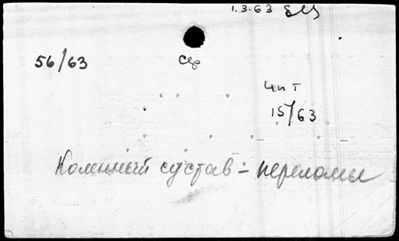 1.3.63
56/63
Чит
15/63
Коленный сустав - переломы